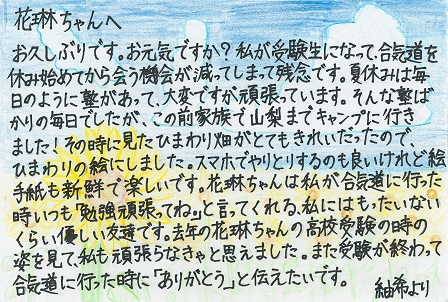 花琳ちゃんへ
お久しぶりです。お元気ですか？私が受験生になって、合気道を
休み始めてから会う機会が減ってしまって残念です。夏休みは毎
日のように塾があって、大変ですが頑張っています。そんな塾ば
かりの毎日でしたが、この前家族で山梨までキャンプに行き
ました！その時に見たひまわり畑がとてもきれいだったので、
ひまわりの絵にしました。スマホでやりとりするのも良いけれど絵
手紙も新鮮で楽しいです。花琳ちゃんは私が合気道に行った
時いつも「勉強頑張ってね。」と言ってくれる、私にはもったいない
くらい優しい友達です。去年の花琳ちゃんの高校受験の時の
姿を見て、私も頑張らなきゃと思えました。また受験が終わって
合気道に行った時に「ありがとう」と伝えたいです。
紬希より